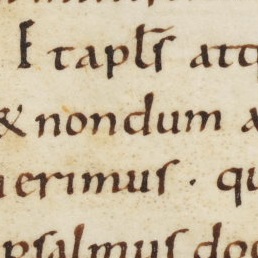 E tapl̅s atq
& nondum a
erimus · qu
psalmus doc